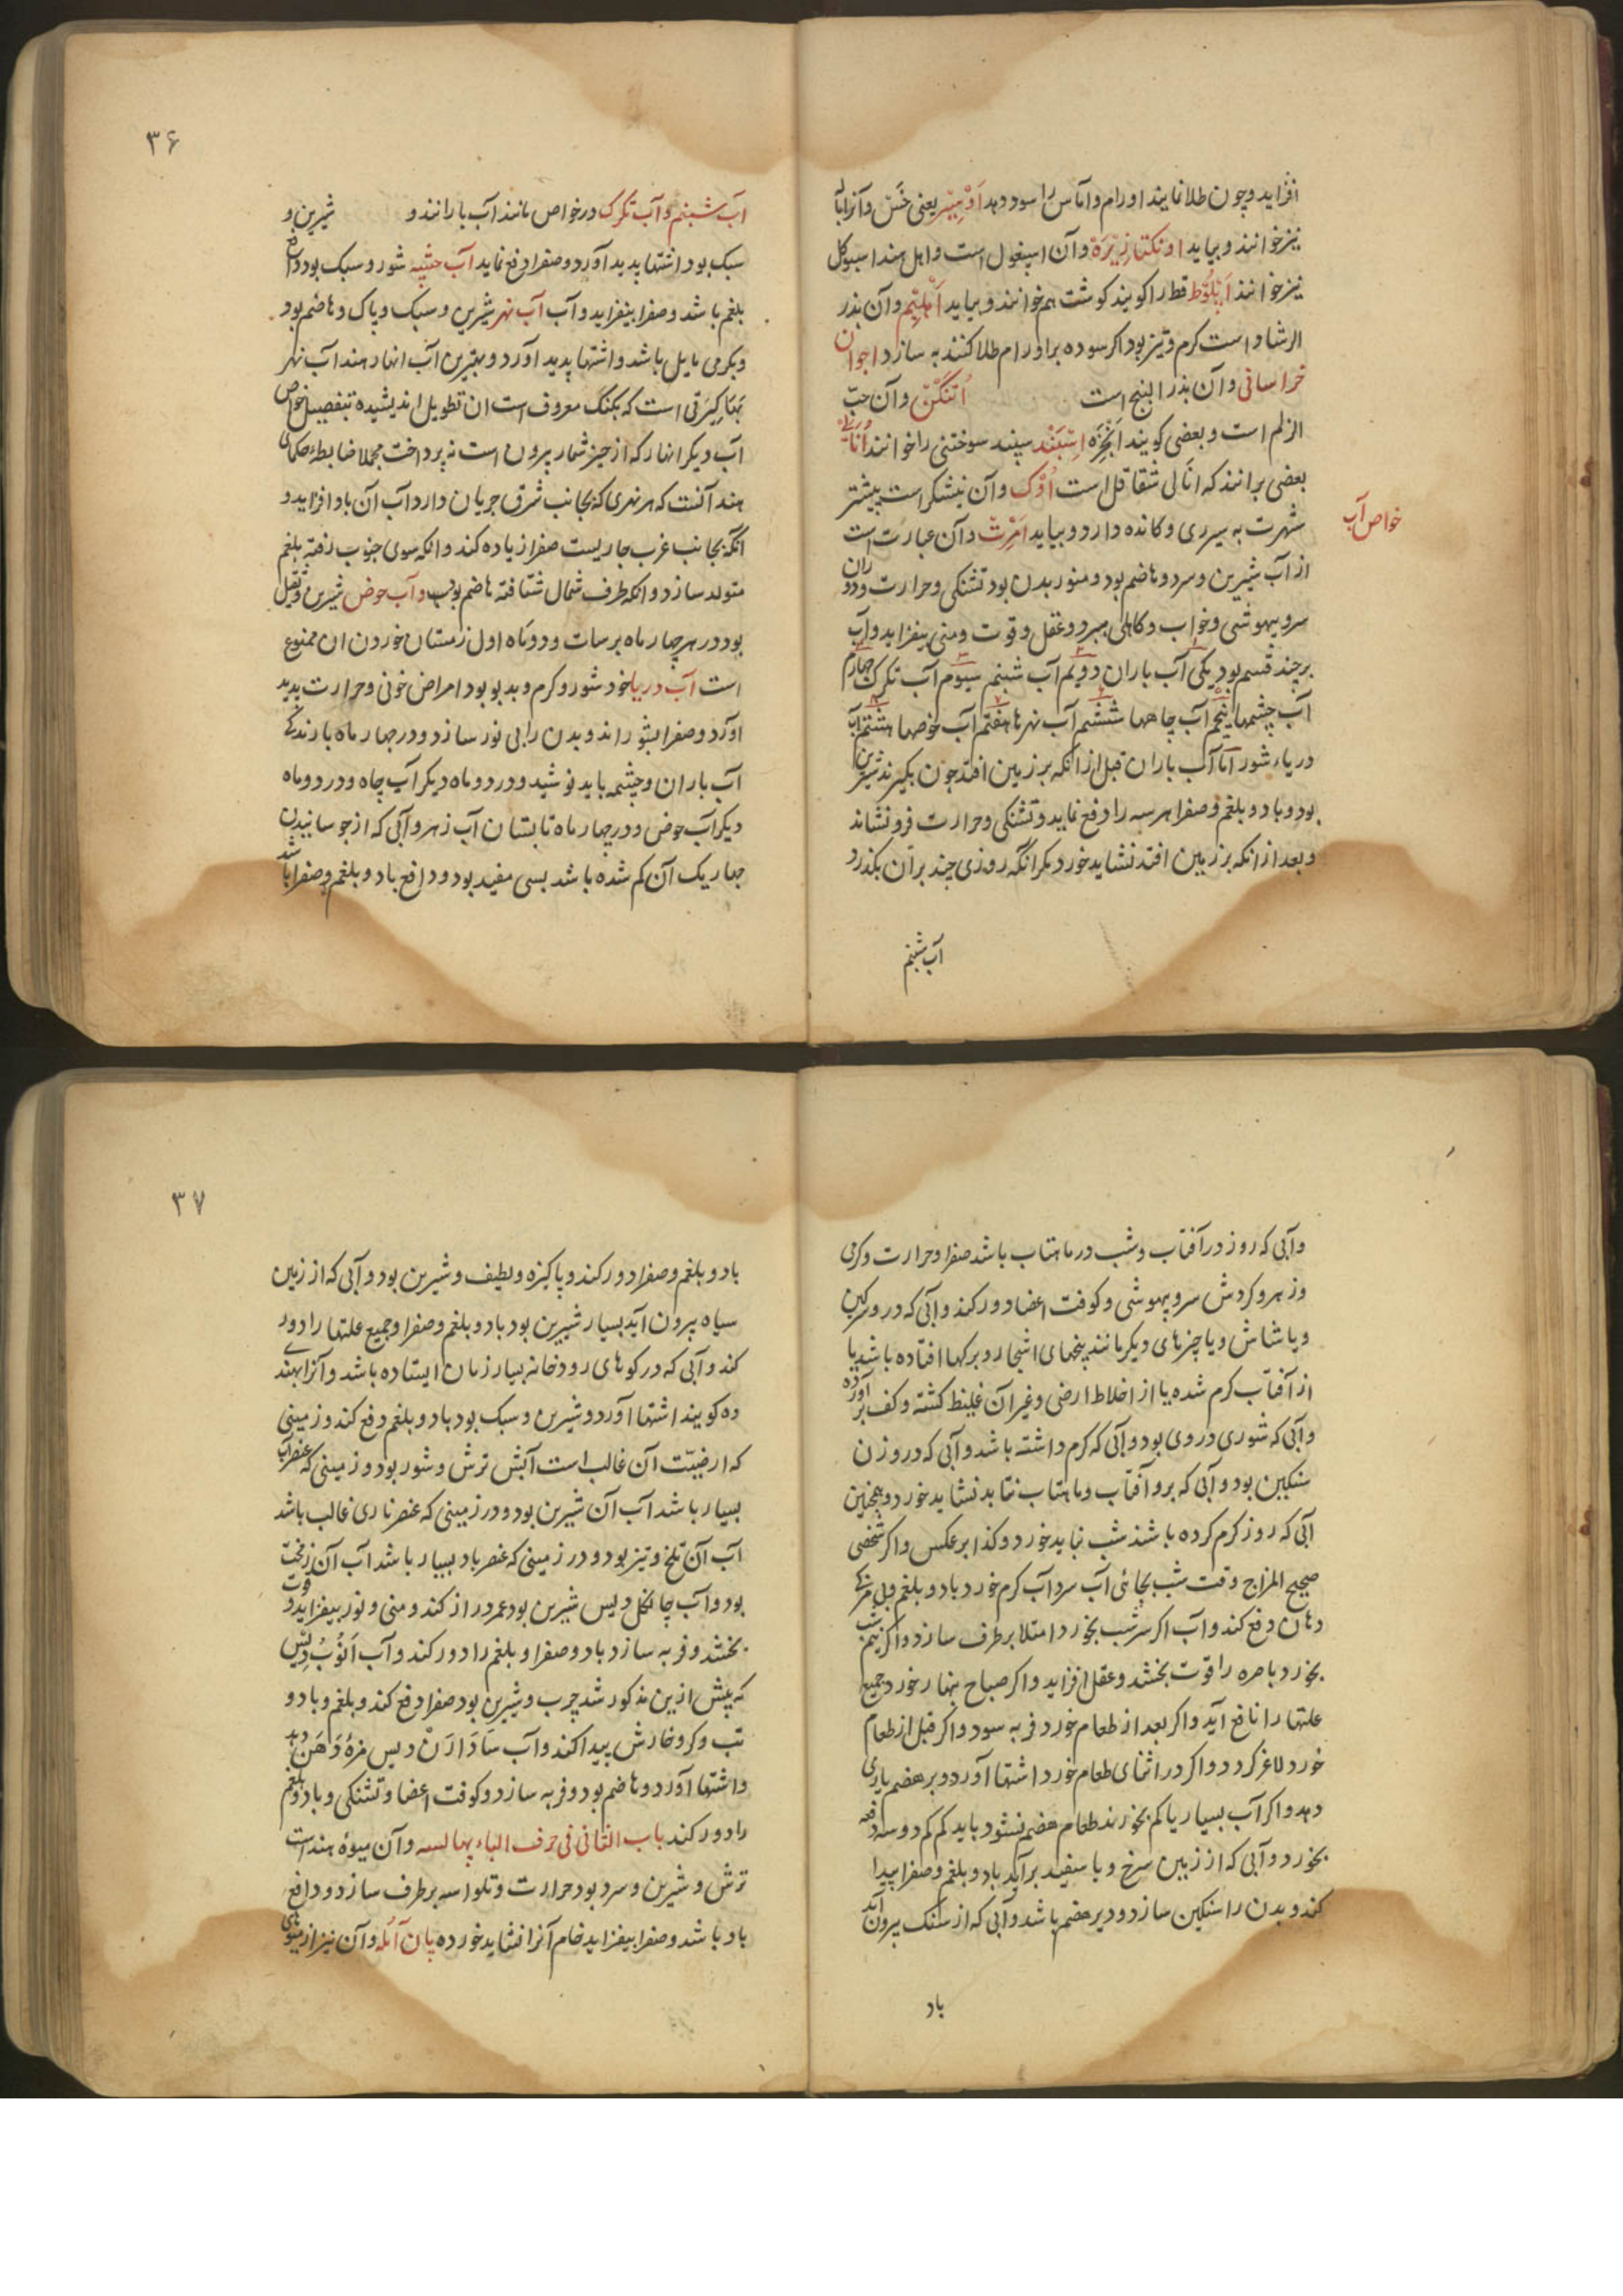 افزاید و چون طلا نمایند اورام و آماس را سود دهد اَوْسِیْر یعنی خَسّ و آنرا با
نیز خوانند و بیاید اونکتا زِیْرَهْ و آن اسپغول است و اهل هند اسبوکل
نیز خوانند اَبْلُوْط قطا را کویند کوشت هم خوانند و بیاید اَهْلِیَمْ و آن بذر
الرشاد است کرم و تیز بود اکر سوده بر اورام طلا کنند به سازد اجوان
خراسانی و آن بذر البنج است اُتنکَنْ و آن حبّ
الزلم است و بعضی کویند اَنْجُرَه اِسْپَنْد سپند سوختنی را خوانند اُنَالیْ
بعضی برانند که انالی شقاقل است اُوْک و آن نیشکر است بیشتر
شهرت به سردی و کانده دارد و بیاید اَمْرِتْ و آن عبارت است
خواص آب
از آب شیرین و سرد و هاضم بود و منور بدن بود تشنکی و حرارت و دوران
سر و بیهوشی و خواب و کاهلی ببرد و عقل و قوت و منی بیفزاید و آب
بر چند قسم بود یکی آب باران دویم آب شبنم سیوم آب تکرک چهارم
آب چشمها پنجم آب چاهها ششم آب نهرها هفتم آب حوضها هشتم آب
دریاء شور اما آب باران قبل از انکه بر زمین افتد چون بکیرند شیرین
بود و باد و بلغم و صفرا هر سه را دفع نماید و تشنکی و حرارت فرو نشاند
و بعد از انکه بر زمین افتد نشاید خورد مکر انکه روزی چند بر آن بکذرد
آب شبنم
۳۶
آب شبنم و آب تکرک در خواص مانند آب بارانند و شیرین و
سبک بود اشتها پدید آورد و صفرا دفع نماید آب چشمه شور و سبک بود دافع
بلغم باشد و صفرا بیفزاید و آب آب نهر شیرین و سبک و پاک و هاضم بود
و بکرمی مایل باشد و اشتها پدید آورد و بهترین آب انهار هند آب نهر
بَهَاکِیْرَتی است که بکنک معروف است ان تطویل اندیشیده بتفصیل خواص
آب دیکر انهار که از حیز شمار بیرون است نه پرداخت مجملا ضابطهء حکمای
هند آنست که هر نهری که بجانب شرق جریان دارد آب آن باد افزاید و
آنکه بجانب غرب جاریست صفرا زیاده کند و انکه سوی جنوب رفته بلغم
متولد سازد و انکه طرف شمال شتافته هاضم بود و آب حوض شیرین و ثقیل
بود در هر چهار ماه برسات و دو ماه اول زمستان خوردن ان ممنوع
است آب دریا خود شور و کرم و بدبو بود امراض خونی و حرارت پدید
آورد و صفرا بشوراند و بدن را بی نور سازد و در چهار ماه بارندکی
آب باران و چشمه باید نوشید و در دو ماه دیکر آب چاه و در دو ماه
دیکر آب حوض و در چهار ماه تابستان آب نهر و آبی که از جوسانیدن
چهار یک آن کم شده باشد بسی مفید بود و دافع باد و بلغم و صفرا باشد
و آبی که روز در آفتاب و شب در ماهتاب باشد صفرا و حرارت و کرمی
و زهر و کردش سر و بیهوشی و کوفت اعضا دور کند و آبی که در و سرکین
و یا شاش و یا چیزهای دیکر مانند بیخهای اشجار و برکها افتاده باشد یا
از آفتاب کرم شده یا از اخلاط ارضی و غیر آن غلیظ کشته و کف بر آورده
و آبی که شوری در وی بود و آبی که کرم داشته باشد و آبی که در وزن
سنکین بود و آبی که برو آفتاب و ماهتاب نتابد نشاید خورد و همچنین
آبی که روز کرم کرده باشند شب نباید خورد و کذا بر عکس و اکر شخصی
صحیح المزاج وقت شب بجائی آب سرد آب کرم خورد باد و بلغم و بی مزکی
دهان دفع کند و آب اکر سر شب بخورد امتلا بر طرف سازد و اکر نیم شب
بخورد باصره را قوت بخشد و عقل افزاید و اکر صباح نهار خورد جمیع
علتها را نافع آید و اکر بعد از طعام خورد فربه سود و اکر قبل از طعام
خورد لاغر کردد و اکر در اثنای طعام خورد اشتها آورد و بر هضم یاری
دهد و اکر آب بسیار یا کم بخورند طعام هضم نشود باید کم کم دو سه دفعه
بخورد و آبی که از زمین سرخ و یا سفید بر آید باد و بلغم و صفرا پیدا
کند و بدن را سنکین سازد و دیر هضم باشد و آبی که از سنک بیرون آید
باد
۳۷
باد و بلغم و صفرا دور کند و پاکیزه و لطیف و شیرین بود و آبی که از زمین
سیاه بیرون آید بسیار شیرین بود باد و بلغم و صفرا و جمیع علتها را دور
کند و آبی که در کوهای رودخانه بسیار زمان ایستاده باشد و آنرا بهندی
ده کویند اشتها آورد و شیرین و سبک بود باد و بلغم دفع کند و زمینی
که ارضیّت آن غالب است آبش ترش و شور بود و زمینی که عنصر آب
بسیار باشد آب آن شیرین بود و در زمینی که عنصر ناری غالب باشد
آب آن تلخ و تیز بود و در زمینی که عنصر باد بسیار باشد آب آن زمخت
بود و آب جانکل دیس شیرین بود عمر دراز کند و منی و نور بیفزاید و قوت
بخشد و فربه سازد باد و صفرا و بلغم را دور کند و آب اَنُوْبْ دِیْس
که پیش ازین مذکور شد چرب و شیرین بود صفرا دفع کند و بلغم و باد و
تب و کر و خارش پیدا کند و آب سَادَارَنْ دیس مزهٔ دَهَنْ دهد
و اشتها آورد و هاضم بود و فربه سازد و کوفت اعضا و تشنکی و باد و بلغم
را دور کند باب الثانی فی حرف الباء پهالسه و آن میوهٔ هند است
ترش و شیرین و سرد بود حرارت و تلواسه بر طرف سازد و دافع
باد باشد و صفرا بیفزاید خام آنرا نشاید خورده پان آنْلَه و آن نیز از میوهای